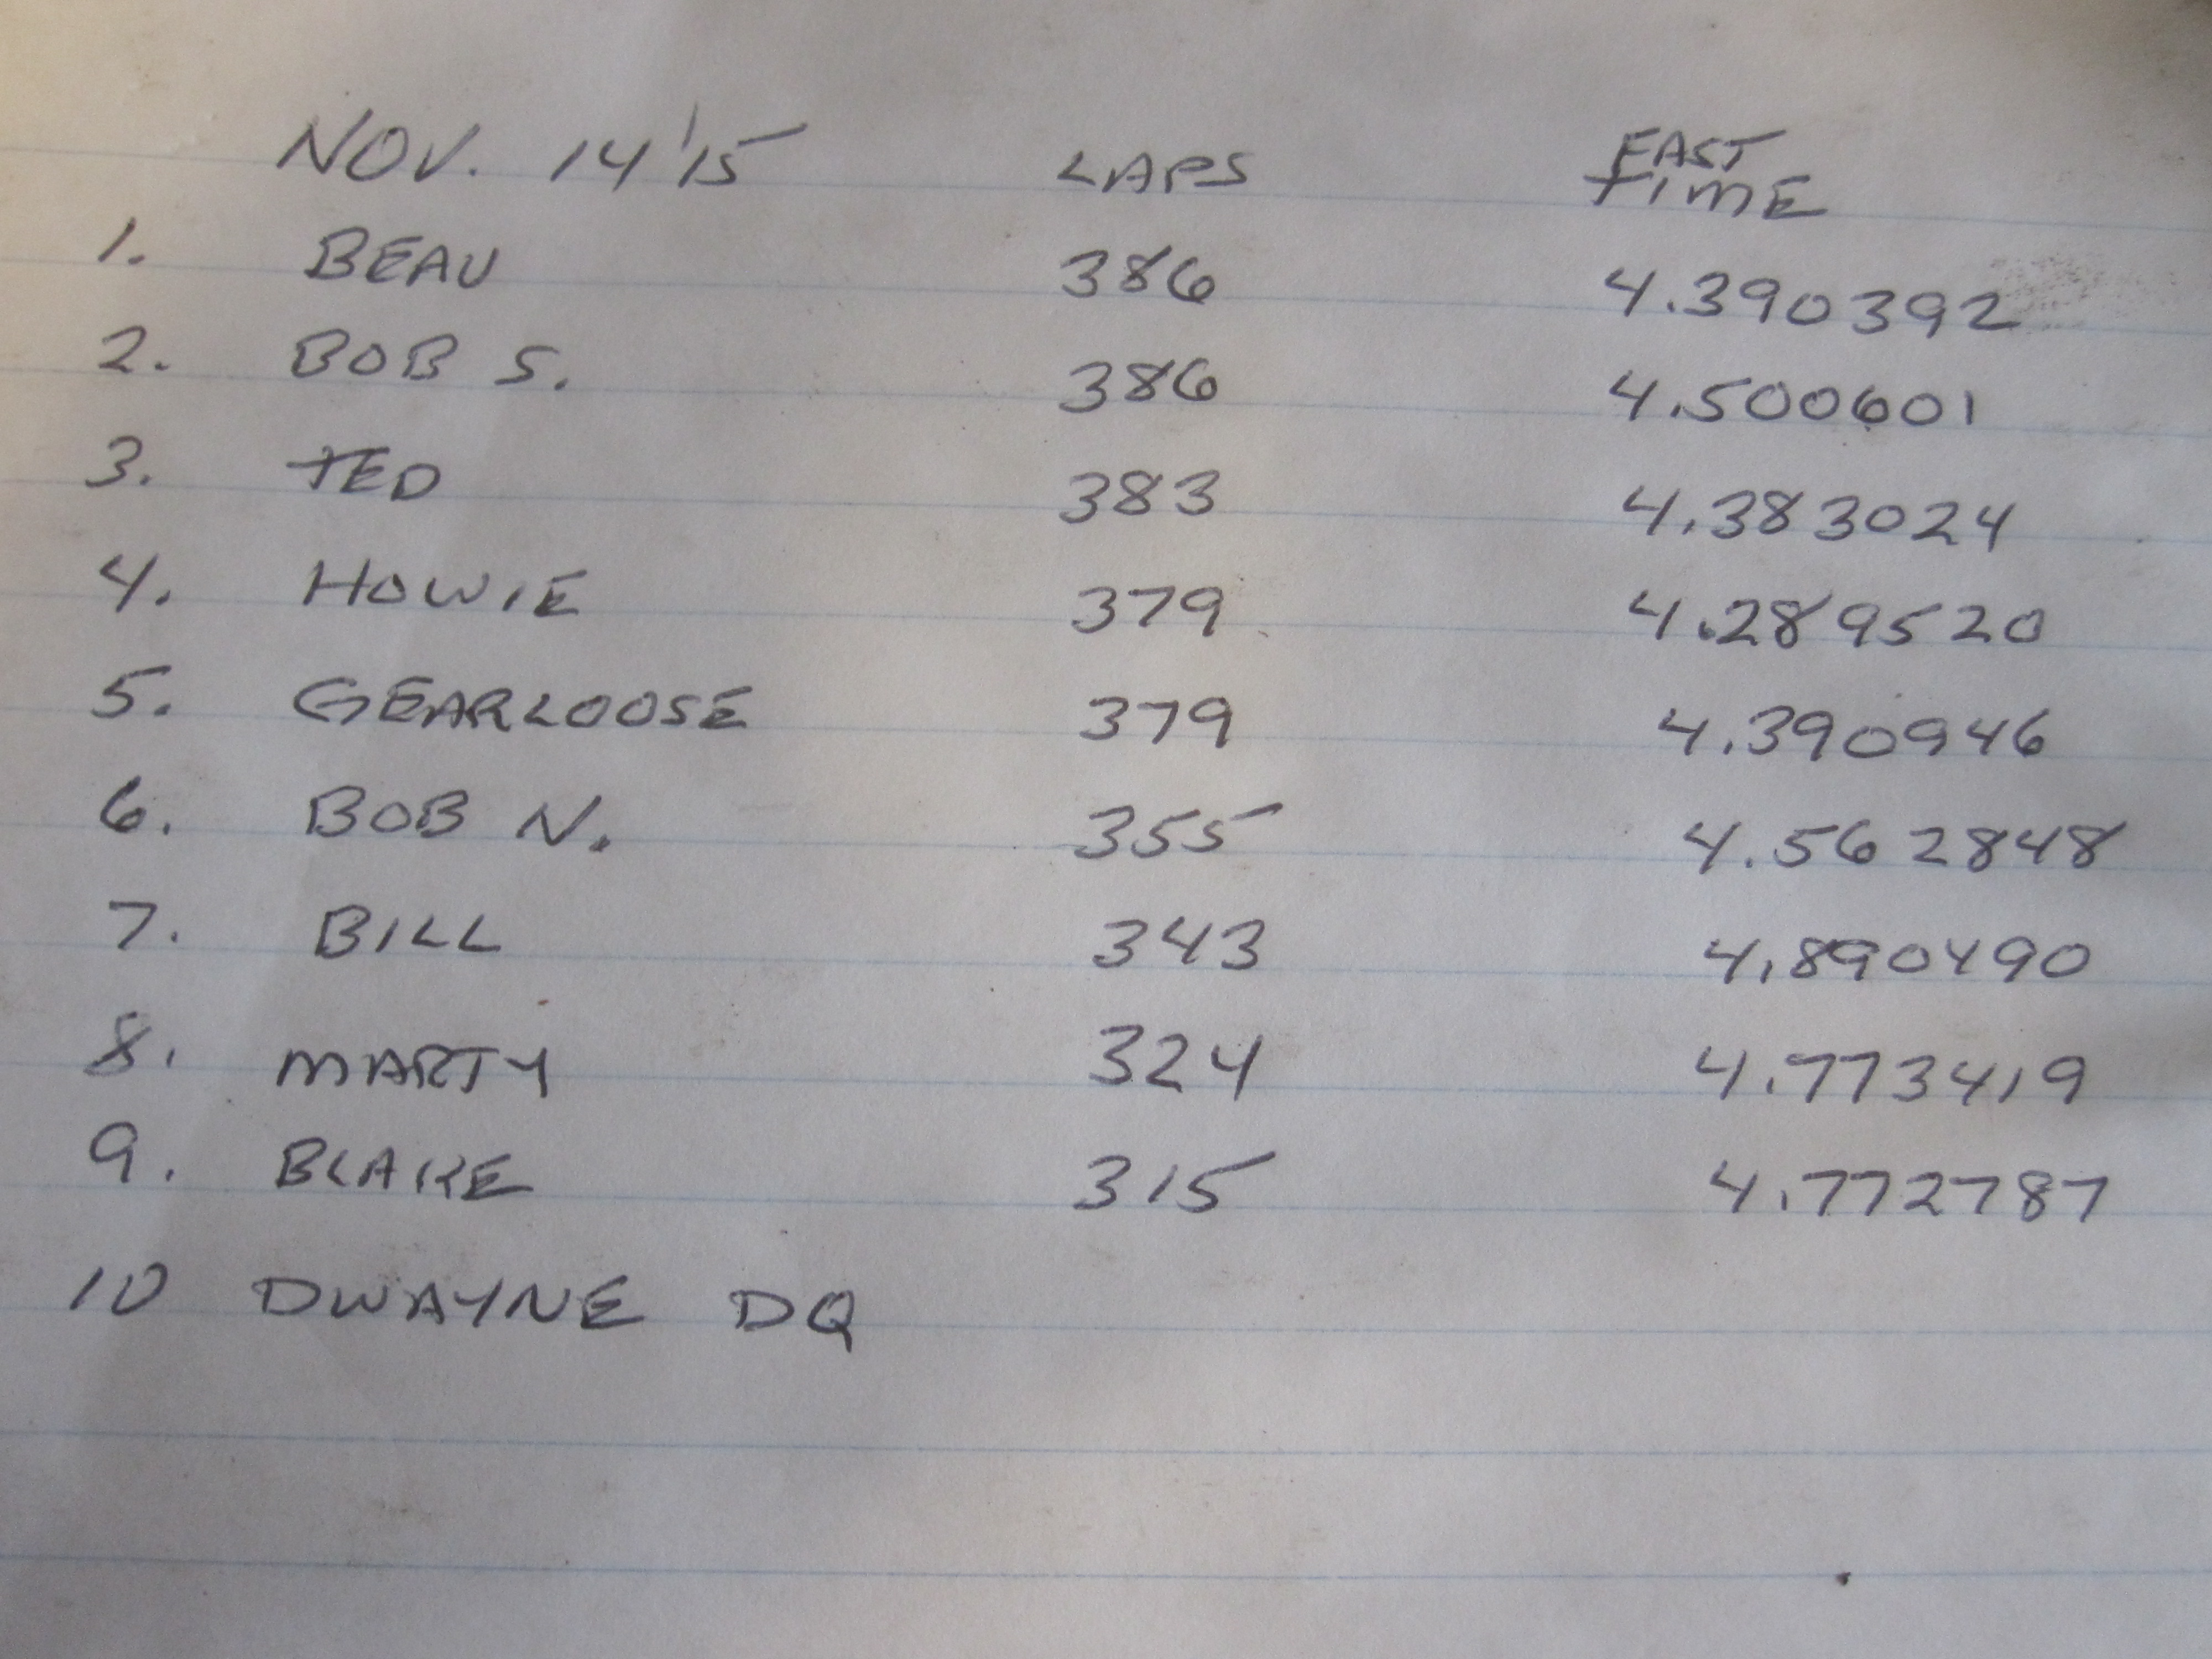 NOV. 14 '15 LAPS FAST TIME
1. BEAU 386 4.390392
2. BOB S. 386 4.500601
3. TED 383 4.383024
4. HOWIE 379 4.289520
5. GEARLOOSE 379 4.390946
6. BOB N. 355 4.562848
7. BILL 343 4.890490
8. MARTY 324 4.773419
9. BLAKE 315 4.772787
10 DWAYNE DQ